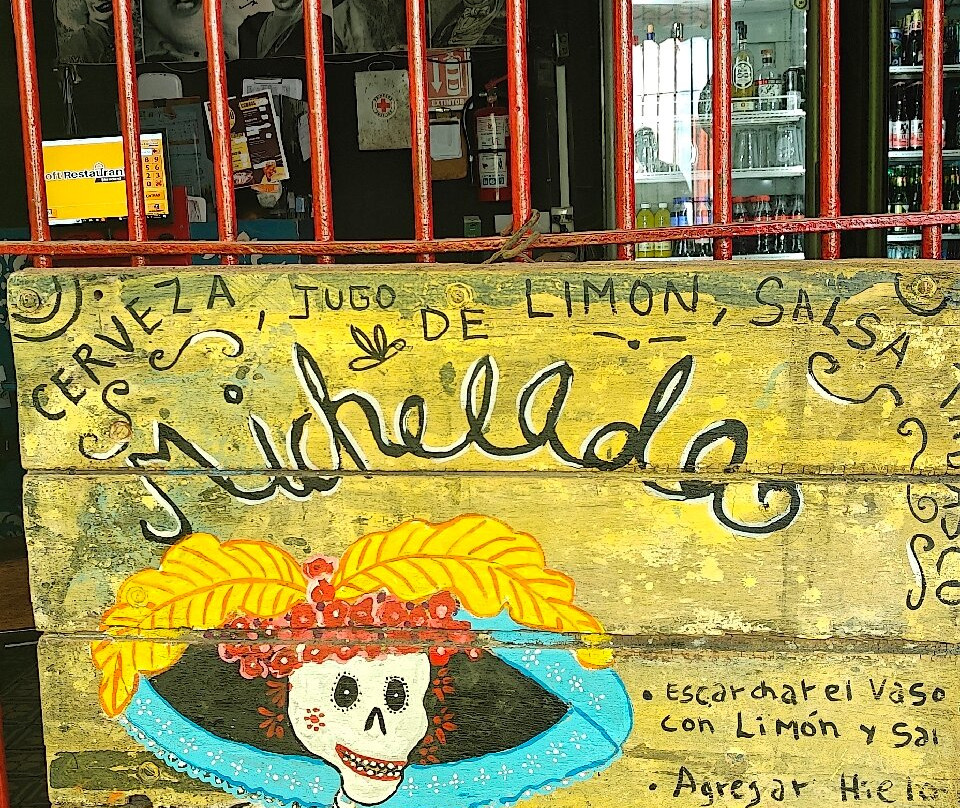 EXTINTOR
oft Restauran
CERVEZA, JUGO DE LIMÓN, SALSA
Michelada
• Escarchar el Vaso
con Limón y Sal
• Agregar Hielo